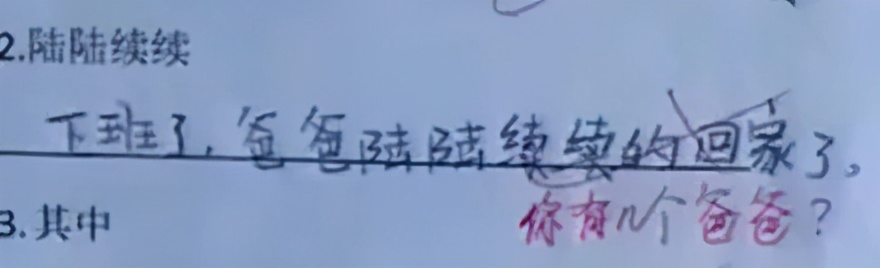 2.陆陆续续
下班了,爸爸陆陆续续的回家了。
你有几个爸爸?
3.其中